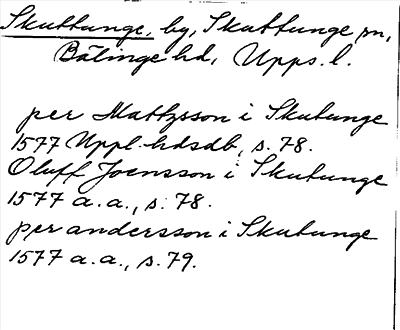 Skuttunge, by, Skuttunge sn,
Bälinge hd, Upps. l.
per Mattzsson i Skutunge
1577 Uppl. hdsdb, s. 78.
Oluff Joensson i Skutunge
1577 a. a., s. 78.
per andersson i Skutunge
1577 a. a., s. 79.